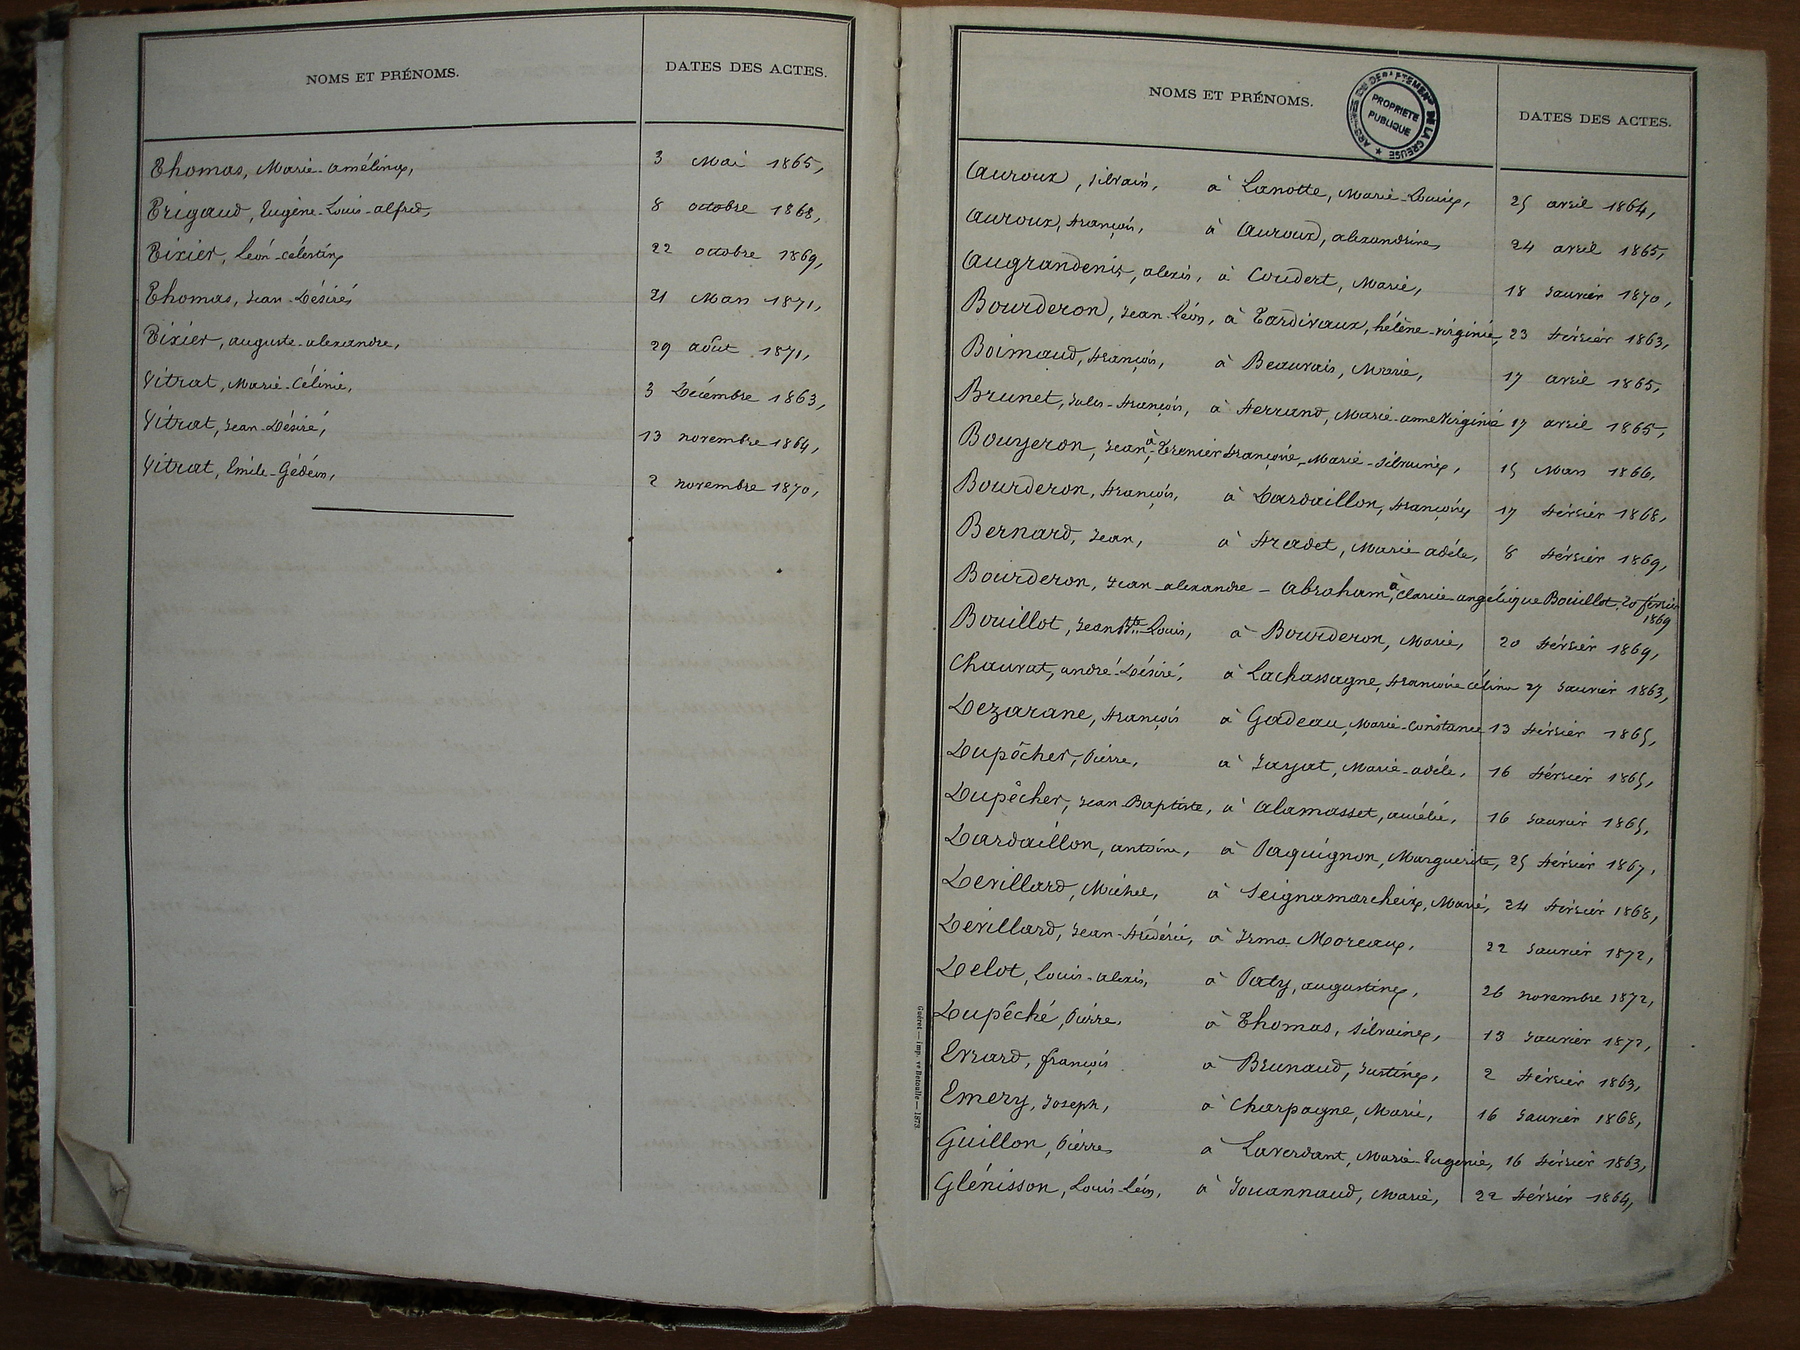 NOMS ET PRÉNOMS. DATES DES ACTES.
Thomas, Marie-amélina, 3 Mai 1865,
Trigaud, Eugène-Louis-alfred, 8 octobre 1868,
Tixier, Léon-célestin, 22 octobre 1869,
Thomas, Jean-Désiré, 21 Mars 1871,
Tixier, auguste-alexandre, 29 août 1871,
Vitrat, Marie-Célinie, 3 Décembre 1863,
Vitrat, Jean-Désiré, 13 novembre 1864,
Vitrat, Emile-Gédéon, 2 novembre 1870,
NOMS ET PRÉNOMS. DATES DES ACTES.
PROPRIETE PUBLIQUE
Auroux, Silvain, à Lanotte, Marie-Louise, 25 avril 1864,
Auroux, François, à Auroux, alexandrine, 24 avril 1865,
Augrandenis, alexis, à Coudert, Marie, 18 Janvier 1870,
Bourderon, Jean-Léon, à Tardivaux, hélène-virginie, 23 Février 1863,
Boimaud, François, à Beauvais, Marie, 17 avril 1865,
Brunet, Jules-François, à Ferrand, Marie-anne Virginie 17 avril 1865,
Bouyeron, Jean, à Grenier Françoise-Marie-Silvaine, 15 Mars 1866,
Bourderon, François, à Dardaillon, Françoise, 17 Février 1868,
Bernard, Jean, à Fradet, Marie adéle, 8 Février 1869,
Bourderon, Jean-alexandre-Abraham, à Clarie-angélique Bouillot, 20 février 1869
Bouillot, Jean Bte Louis, à Bourderon, Marie, 20 Février 1869,
Chauvat, andré-Désiré, à Lachassagne, Françoise célina 27 Janvier 1863,
Dezarane, François à Gadeau, Marie-Constance 13 Février 1865,
Dupêcher, Pierre, à Jayat, Marie-adéle, 16 Février 1865,
Dupêcher, Jean Baptiste, à alamasset, amélie, 16 Janvier 1865,
Dardaillon, antoine, à Paquignon, Marguerite, 25 Février 1867,
Devillard, Michel, à Seignamarcheix, Marie, 24 Février 1868,
Devillard, Jean-Frédéric, à Irma Moreaux, 22 Janvier 1872,
Delot, Louis-alexis, à Paty, augustine, 26 novembre 1872,
Dupêché, Pierre, à Thomas, Silvaine, 13 Janvier 1872,
Evrard, françois à Brunaud, Justine, 2 Février 1863,
Emery, Joseph, à Charpagne, Marie, 16 Janvier 1868,
Guillon, Pierre à Laverdant, Marie-Eugenie, 16 Février 1863,
Glénisson, Louis-Léon, à Jouannaud, Marie, 22 Février 1864,
Guéret — imp. ve Betoulle — 1873.